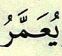 يُعَمَّرُ